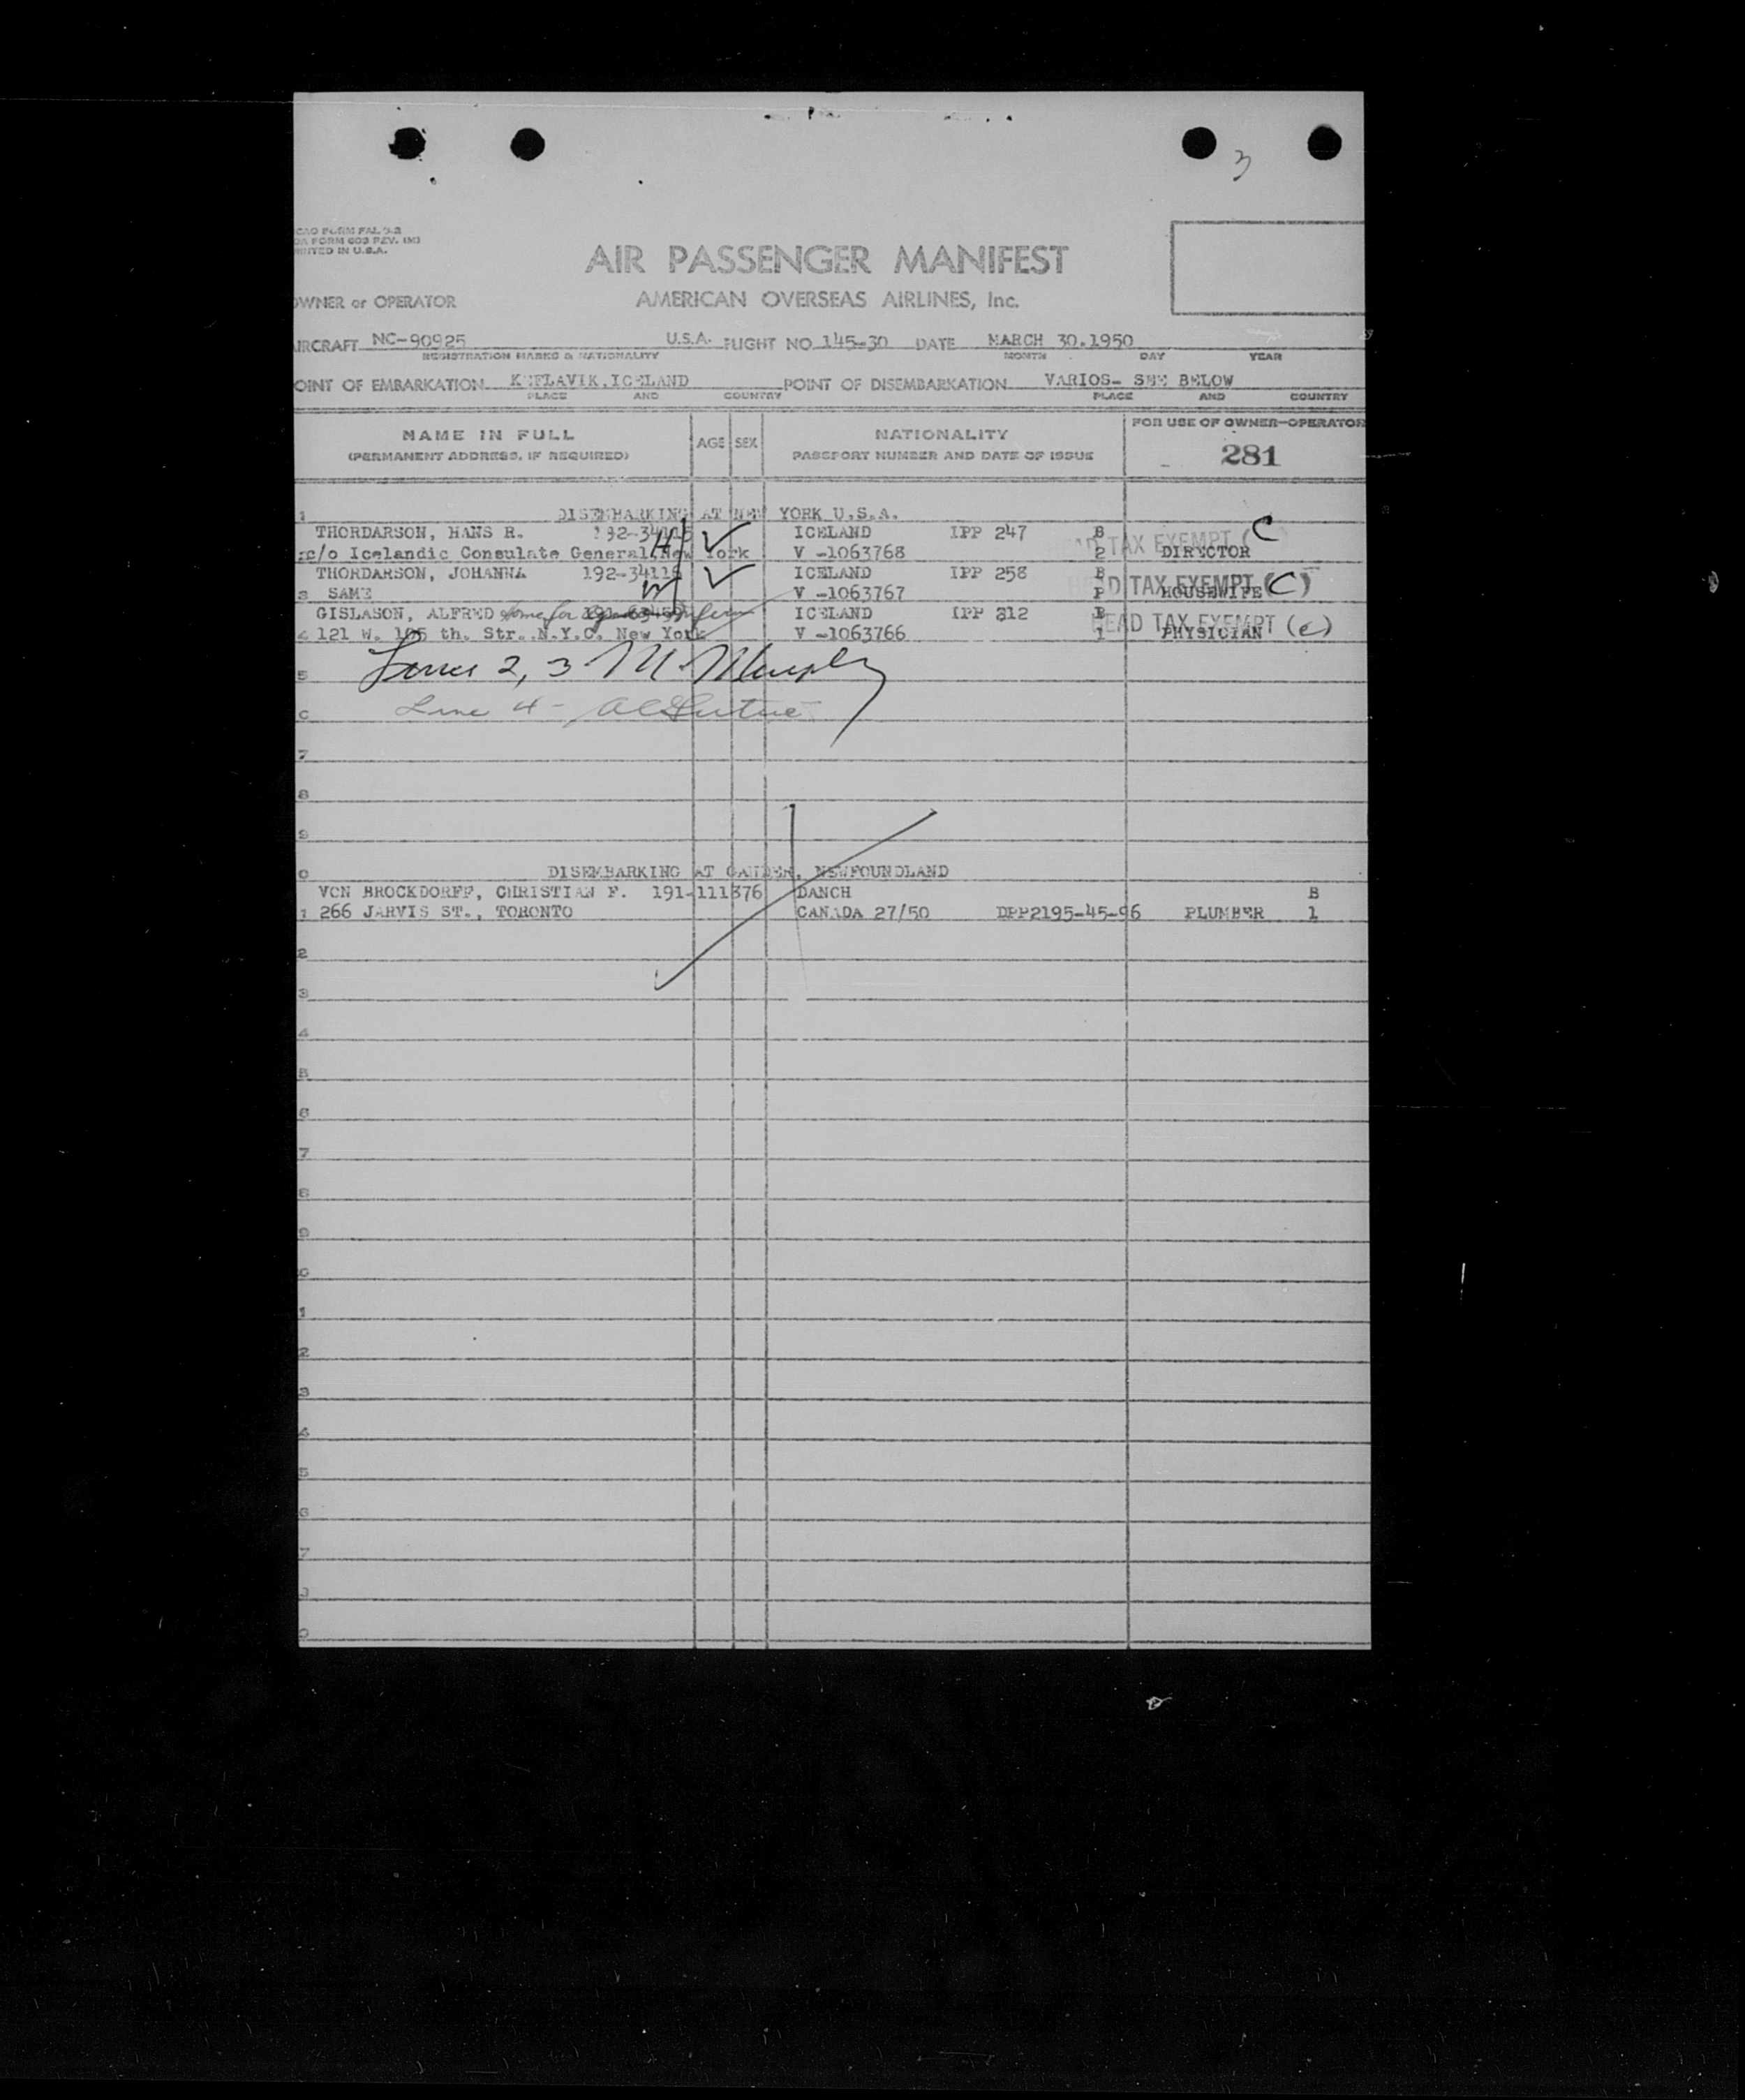 3
CAO FORM FAL 3-2
OA FORM 603 REV. (M)
INTED IN U.S.A.
AIR PASSENGER MANIFEST
OWNER or OPERATOR AMERICAN OVERSEAS AIRLINES, Inc.
IRCRAFT NC-90925 U.S.A. FLIGHT NO 145-30 DATE MARCH 30.1950
REGISTRATION MARKS & NATIONALITY MONTH DAY YEAR
OINT OF EMBARKATION KEFLAVIK.ICELAND POINT OF DISEMBARKATION VARIOS- SEE BELOW
PLACE AND COUNTRY PLACE AND COUNTRY
NAME IN FULL AGE SEX NATIONALITY FOR USE OF OWNER-OPERATOR
(PERMANENT ADDRESS, IF REQUIRED) PASSPORT NUMBER AND DATE OF ISSUE 281
1 DISEMBARKING AT NEW YORK U.S.A.
THORDARSON, HANS R. 192-34115 ICELAND IPP 247 B TAX EXEMPT (C
c/o Icelandic Consulate General, New York V -1063768 2 DIRECTOR
THORDARSON, JOHANNA 192-34116 ICELAND IPP 258 B HEAD TAX EXEMPT (C)
3 SAME V -1063767 P HOUSEWIFE
GISLASON, ALFRED ICELAND IPP 312 B HEAD TAX EXEMPT (c)
4 121 W. 105 th. Str. N.Y.C. New York V -1063766 1 PHYSICIAN
5 Lines 2, 3 M. Murphy
6 Line 4 -
7
8
9
0 DISEMBARKING AT GANDER, NEWFOUNDLAND
VON BROCKDORFF, CHRISTIAN F. 191-111376 DANCH B
1 266 JARVIS ST., TORONTO CANADA 27/50 DPP2195-45-96 PLUMBER 1
2
3
4
5
6
7
8
9
0
1
2
3
4
5
6
7
8
9